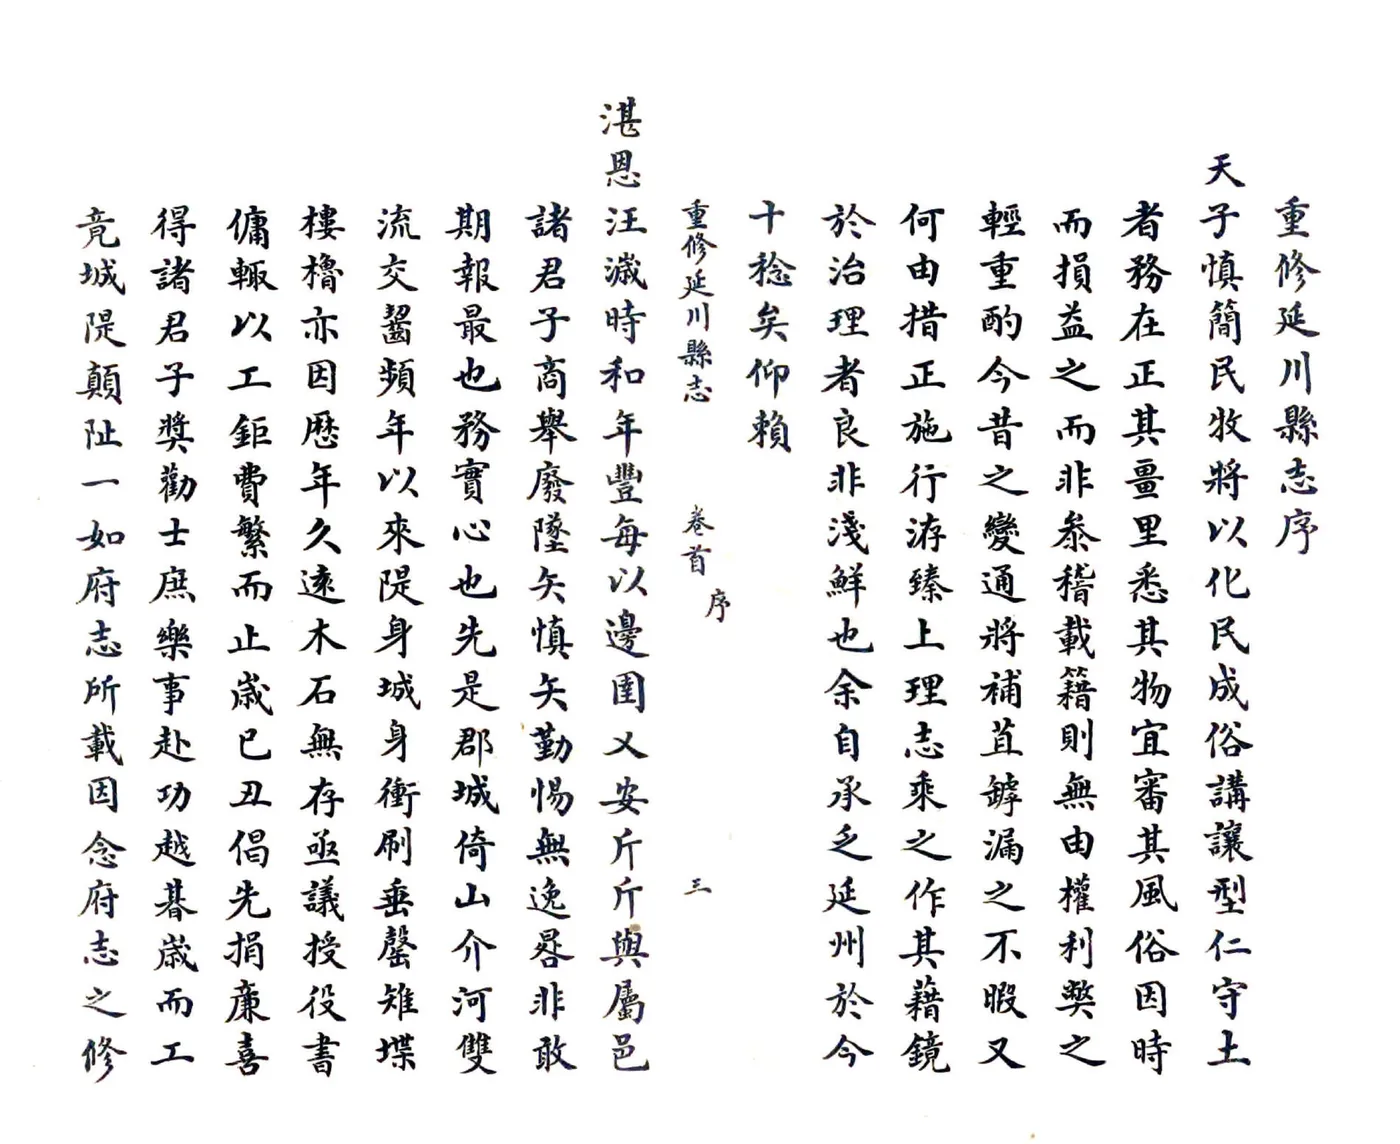 重修延川縣志序
天子慎簡民牧將以化民成俗講讓型仁守土
者務在正其畺里悉其物宜審其風俗因時
而損益之而非叅稽載籍則無由權利獘之
輕重酌今昔之變通將補苴罅漏之不暇又
何由措正施行洊臻上理志乘之作其藉鏡
於治理者良非淺鮮也余自承乏延州於今
十稔矣仰賴
重修延川縣志 卷首 序 三
湛恩汪濊時和年豐每以邊圉乂安斤斤與屬邑
諸君子商舉廢墜矢慎矢勤惕無逸晷非敢
期報最也務實心也先是郡城倚山介河雙
流交齧頻年以來隄身城身衝刷垂罄雉堞
樓櫓亦因歷年久遠木石無存亟議授役書
傭輙以工鉅費繁而止歲已丑倡先捐廉喜
得諸君子獎勸士庶樂事赴功越朞歲而工
竟城隄顛阯一如府志所載因念府志之修